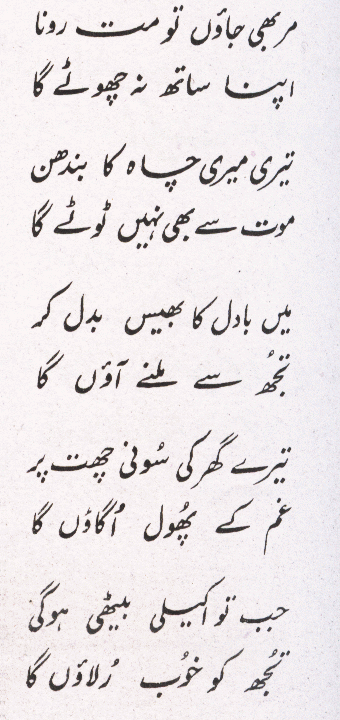 مر بھی جاؤں تو مت رونا
اپنا ساتھ نہ چھوٹے گا
تیری میری چاہ کا بندھن
موت سے بھی نہیں ٹوٹے گا
میں بادل کا بھیس بدل کر
تجھُ سے ملنے آؤں گا
تیرے گھر کی سُونی چھت پر
غم کے پھُول اُگاؤں گا
جب تو اکیلی بیٹھی ہوگی
تجُھ کو خوُب رُلاؤں گا